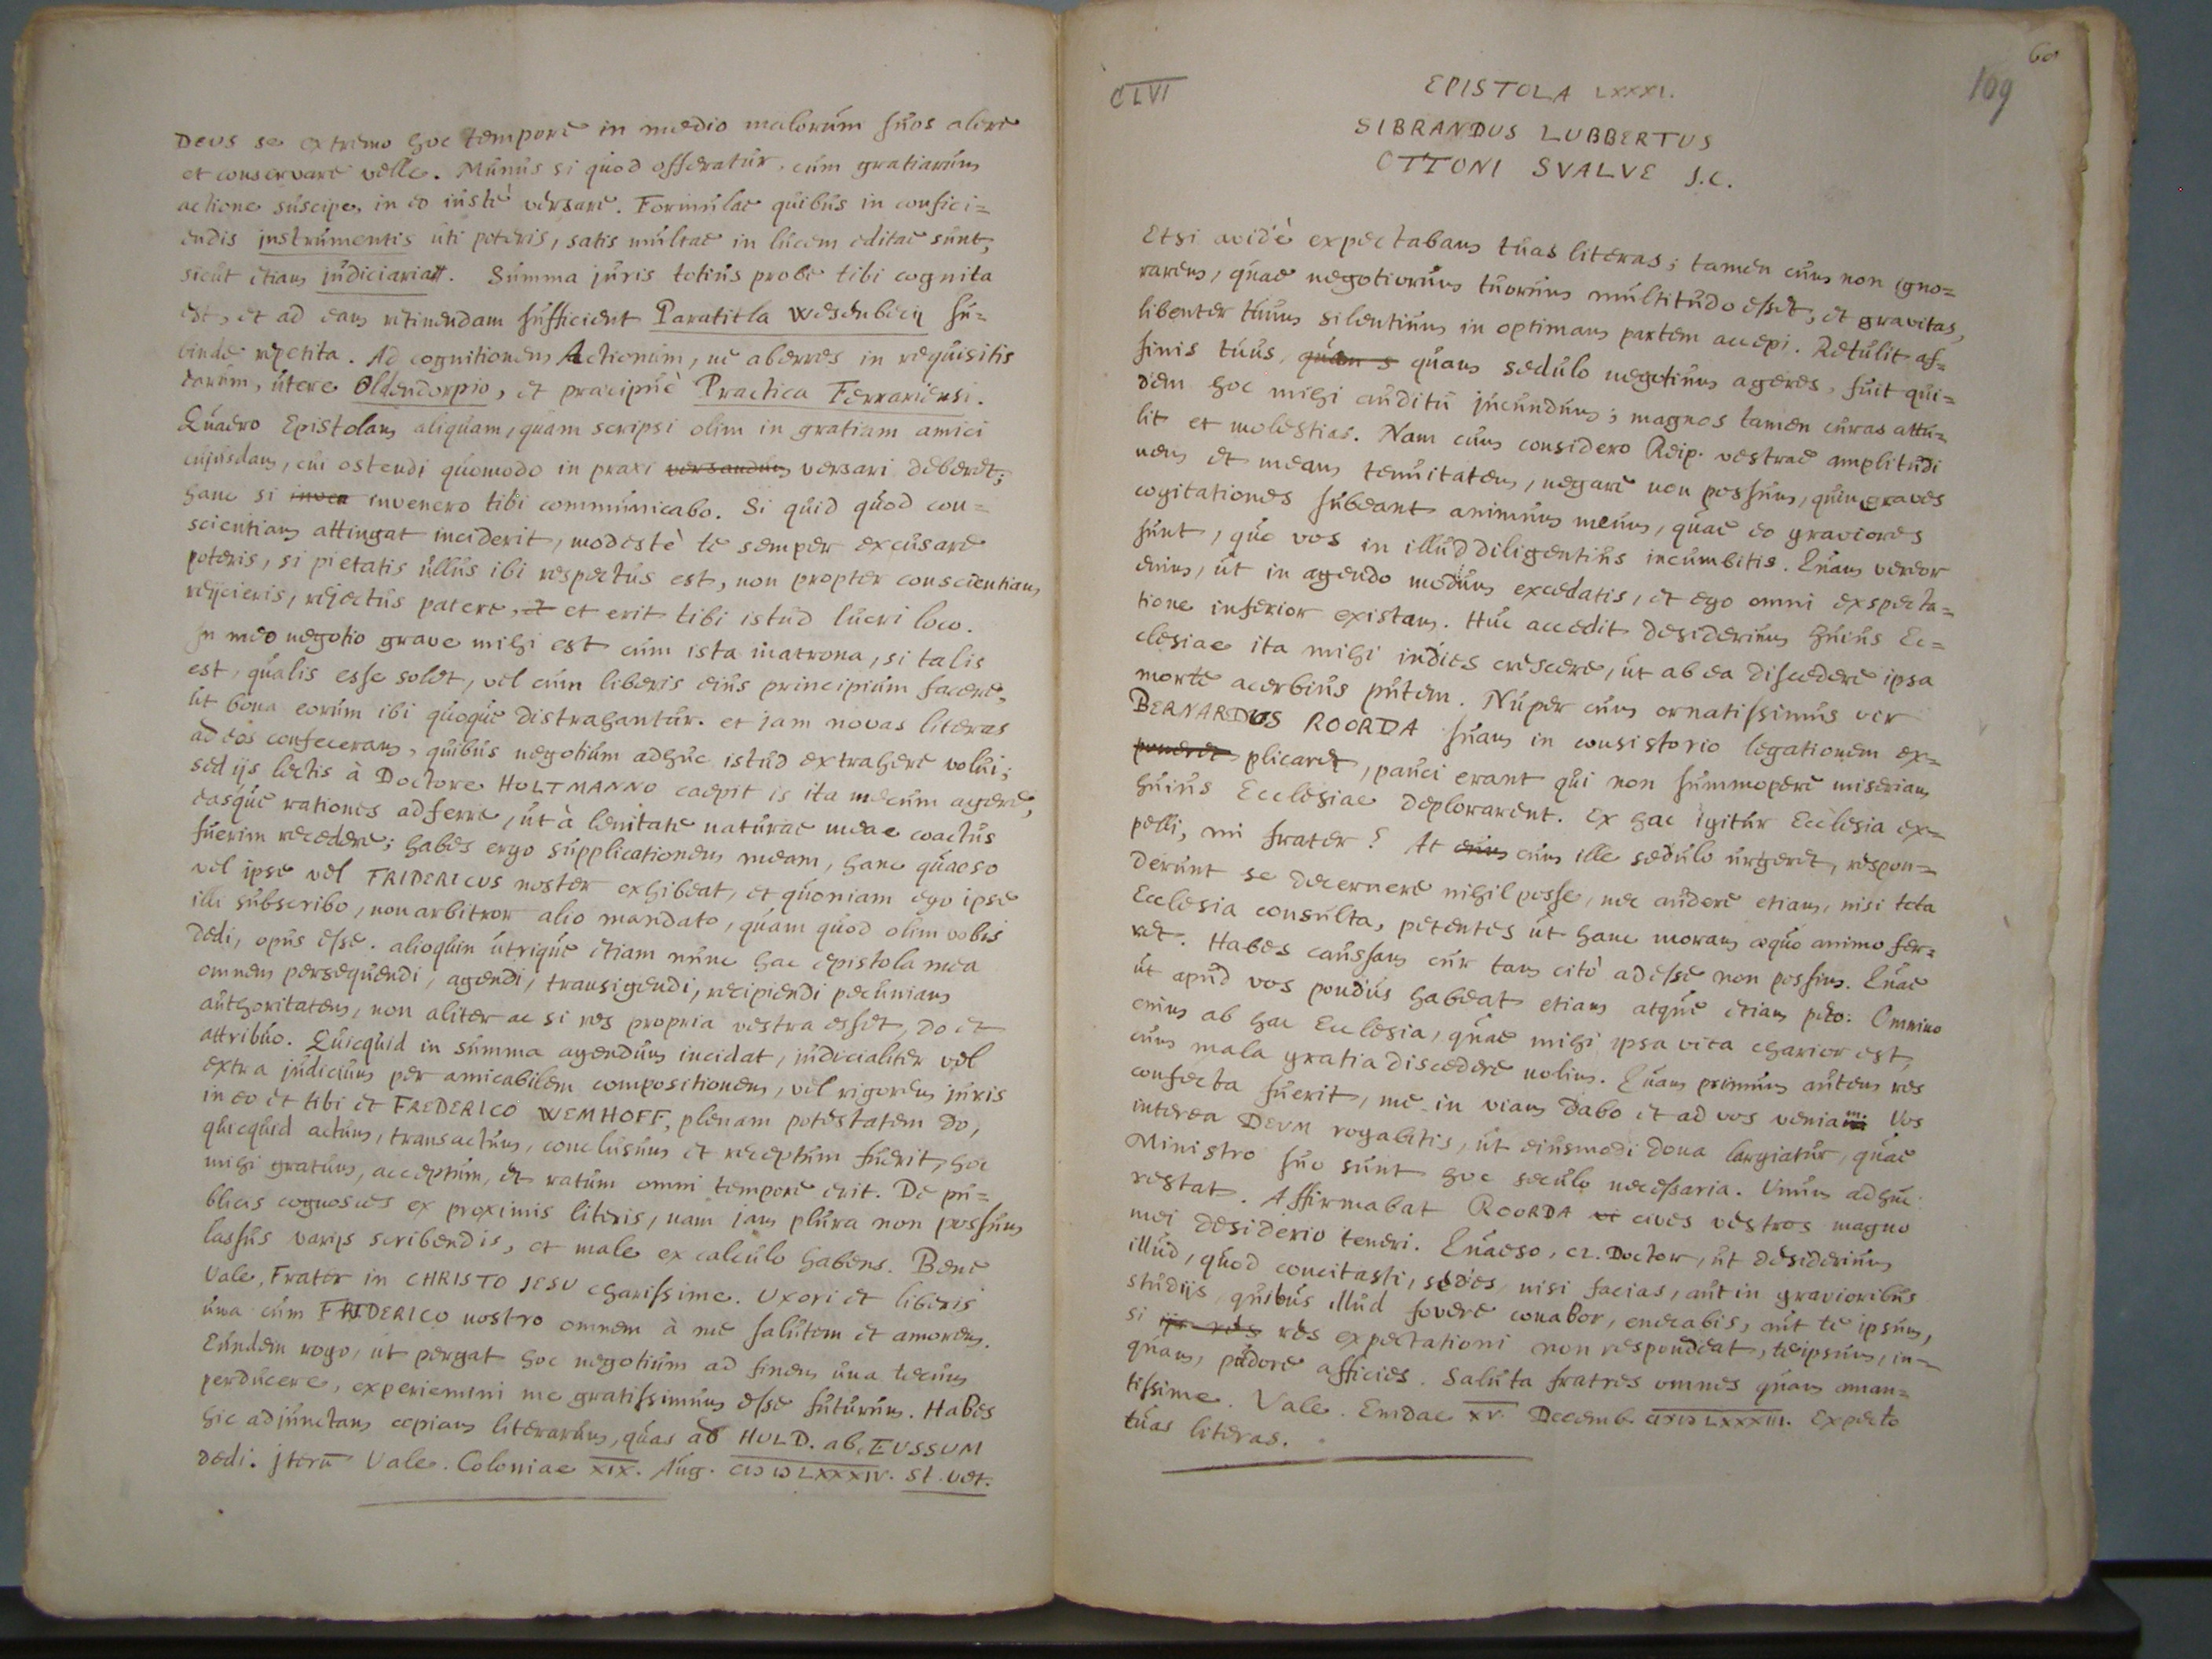 Deus se extremo hoc tempore in medio malorum suos alere
et conservare velle. Munus si quod offeratur, cum gratiarum
actione suscipe, in eo iustè versare. Formulae quibus in confici=
endis instrumentis uti poteris, satis multae in lucem editae sunt,
sicut etiam judiciariae. Summa juris totius probe tibi cognita
est, et ad eam retinendam sufficient Paratitla Wesenbecij su=
binde repetita. Ad cognitionem Actionum, ne aberres in requisitis
earum, utere Oldendorpio, et praecipuè Practica Ferrariensi.
Quaero Epistolam aliquam, quam scripsi olim in gratiam amici
cujusdam, cui ostendi quomodo in praxi versandum versari deberet;
hanc si inven invenero tibi communicabo. Si quid quod con=
scientiam attingat inciderit, modestè te semper excusare
poteris, si pietatis ullus ibi respectus est, non propter conscientiam
reijcieris, rejectus patere, et et erit tibi istud lucri loco.
In meo negotio grave mihi est cum ista matrona, si talis
est, qualis esse solet, vel cum liberis eius principium facere,
ut bona eorum ibi quoque distrahantur. et jam novas literas
ad eos confeceram, quibus negotium adhuc istud extrahere volui;
sed ijs lectis à Doctore HOLTMANNO caepit is ita mecum agere,
easque rationes adferre, ut à lenitate naturae meae coactus
fuerim recedere; habes ergo supplicationem meam, hanc quaeso
vel ipse vel FRIDERICUS noster exhibeat, et quoniam ego ipse
illi subscribo, non arbitror alio mandato, quam quod olim vobis
dedi, opus esse. alioquin utrique etiam nunc hac epistola mea
omnem persequendi, agendi, transigendi, recipiendi pecuniam
authoritatem, non aliter ac si res propria vestra esset, do et
attribuo. Quicquid in summa agendum incidat, judicialiter vel
extra judicium per amicabilem compositionem, vel rigorem juris
in eo et tibi et FREDERICO WEMHOFF, plenam potestatem do,
quicquid actum, transactum, conclusum et receptum fuerit, hoc
mihi gratum, acceptum, et ratum omni tempore erit. De pu=
blicis cognosces ex proximis literis, nam jam plura non possum
lassus varijs scribendis, et male ex calculo habens. Bene
Vale, Frater in CHRISTO JESU charissime. Uxori et liberis
una cum FRIDERICO nostro omnem à me salutem et amorem.
Eundem rogo, ut pergat hoc negotium ad finem una tecum
perducere, experiemini me gratissimum esse futurum. Habes
hic adjunctam copiam literarum, quas ad HULD. ab EUSSUM
dedi. Iterū Vale. Coloniae XIX. Aug. CIƆ IƆ LXXXIV. St. vet.
60
109
CLVI
EPISTOLA LXXXI.
SIBRANDUS LUBBERTUS
OTTONI SVALVE J.C.
Etsi avidè expectabam tuas literas; tamen cum non igno=
rarem, quae negotiorum tuorum multitudo esset, et gravitas,
libenter tuum silentium in optimam partem accepi. Retulit af=
finis tuus, quam s quam sedulo negotium ageres, fuit qui=
dem hoc mihi auditu jucundum; magnas tamen curas attu=
lit et molestias. Nam cum considero Reip. vestrae amplitudi
nem et meam tenuitatem, negare non possum, quin graves
cogitationes subeant animum meum, quae eo graviores
sunt, quo vos in illud diligentius incumbitis. Quam vereor
enim, ut in agendo modum excedatis, et ego omni exspecta=
tione inferior existam. Huc accedit desiderium huius Ec=
clesiae ita mihi indies crescere, ut ab ea discedere ipsa
morte acerbius putem. Nuper cum ornatissimus vir
BERNARDUS ROORDA suam in consistorio legationem ex=
poneret plicaret, pauci erant qui non summopere miseriam
huius Ecclesiae deplorarent. Ex hac igitur Ecclesia ex=
pelli, mi frater? At enim cum ille sedulo urgeret, respon=
derunt se decernere nihil posse, nec audere etiam, nisi tota
Ecclesia consulta, petentes ut hanc moram aequo animo fer=
ret. Habes caussam cur tam citò adesse non possim. Quae
ut apud vos pondus habeat etiam atque etiam peto: Omnino
enim ab hac Ecclesia, quae mihi ipsa vita charior est,
cum mala gratia discedere nolim. Quam primum autem res
confecta fuerit, me in viam dabo et ad vos veniam. Vos
interea DEUM rogabitis, ut eiusmodi dona largiatur, quae
Ministro suo sunt hoc seculo necessaria. Unum adhuc
restat. Affirmabat ROORDA vi cives vestros magno
mei desiderio teneri. Quaeso, cl. Doctor, ut desiderium
illud, quod concitasti, sedes, nisi facias, aut in gravioribus
studijs, quibus illud fovere conabor, enecabis, aut te ipsum,
si ips res res expectationi non respondeat, teipsum, in=
quam, pudore afficies. Saluta fratres omnes quam aman=
tissime. Vale. Emdae XV. Decemb. CIƆ IƆ LXXXIII. Expecto
tuas literas.